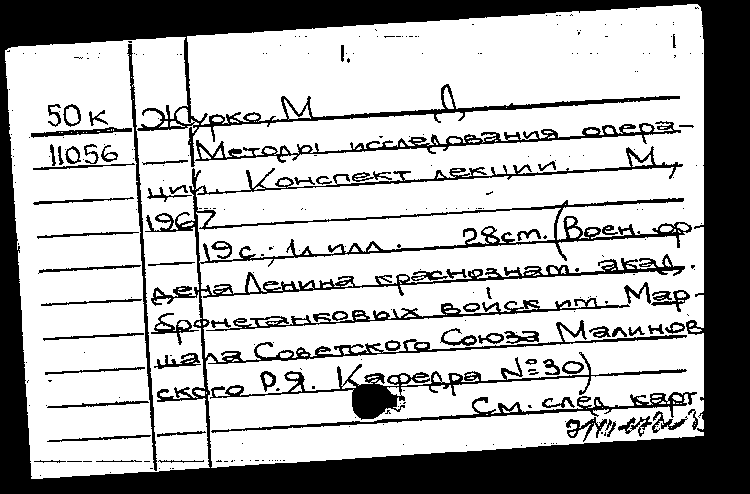 1.
50к Журко, М Д
11056 Методы исследования опера-
ций. Конспект лекции. М.,
1967
19 с.; 1л илл. 28ст. (Воен. ор-
дена Ленина краснознам. акад.
бронетанковых войск им. Мар-
шала Советского Союза Малинов
ского Р.Я. Кафедра №30)
См. след. карт.